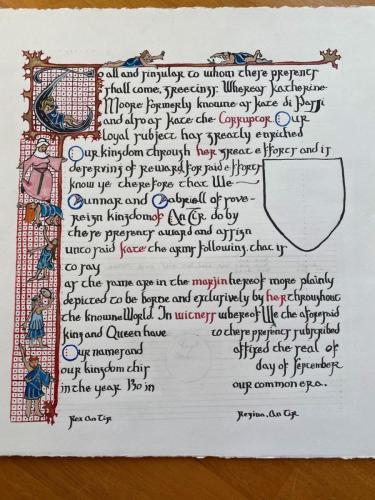 To all and singular to whom these presents
shall come, greetings: Whereas Katherine
Moore formerly knowne as Kate di Pazzi
and also as Kate the Corruptor Our
loyal subject has greatly enriched
Our kingdom through her great efforts and is
deserving of reward for said efforts
know ye therefore that We
Gunnar and Gabriell of sove-
reign kingdom of An Tir do by
these presents award and assign
unto said Kate the arms following, that is
to say
as the same are in the margin hereof more plainly
depicted to be borne and exclusively by her throughout
the knowne World. In witness whereof We the aforesaid
king and Queen have to these presents subscribed
Our names and affixed the seal of
our kingdom this day of September
in the year Bo in our common era.
Rex An Tir Regina, An Tir